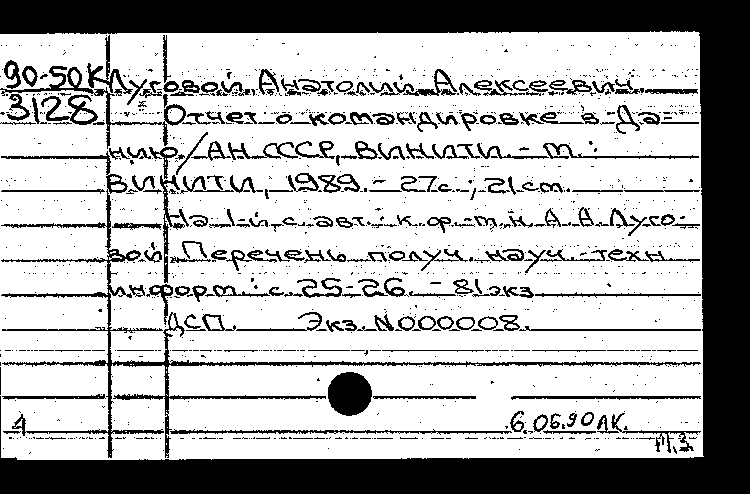 90-50К Луговой, Анатолий Алексеевич.
3128 Отчет о командировке в Да-
нию / АН СССР, ВИНИТИ. - М.:
ВИНИТИ, 1989. - 27с.; 21см.
На 1-й с. авт.: к.ф.-м.н. А.А. Луго-
вой. Перечень получ. науч.-техн.
информ.: с. 25-26. - 81экз
ДСП. Экз. N000008.
6.06.90 ЛК.
М.З